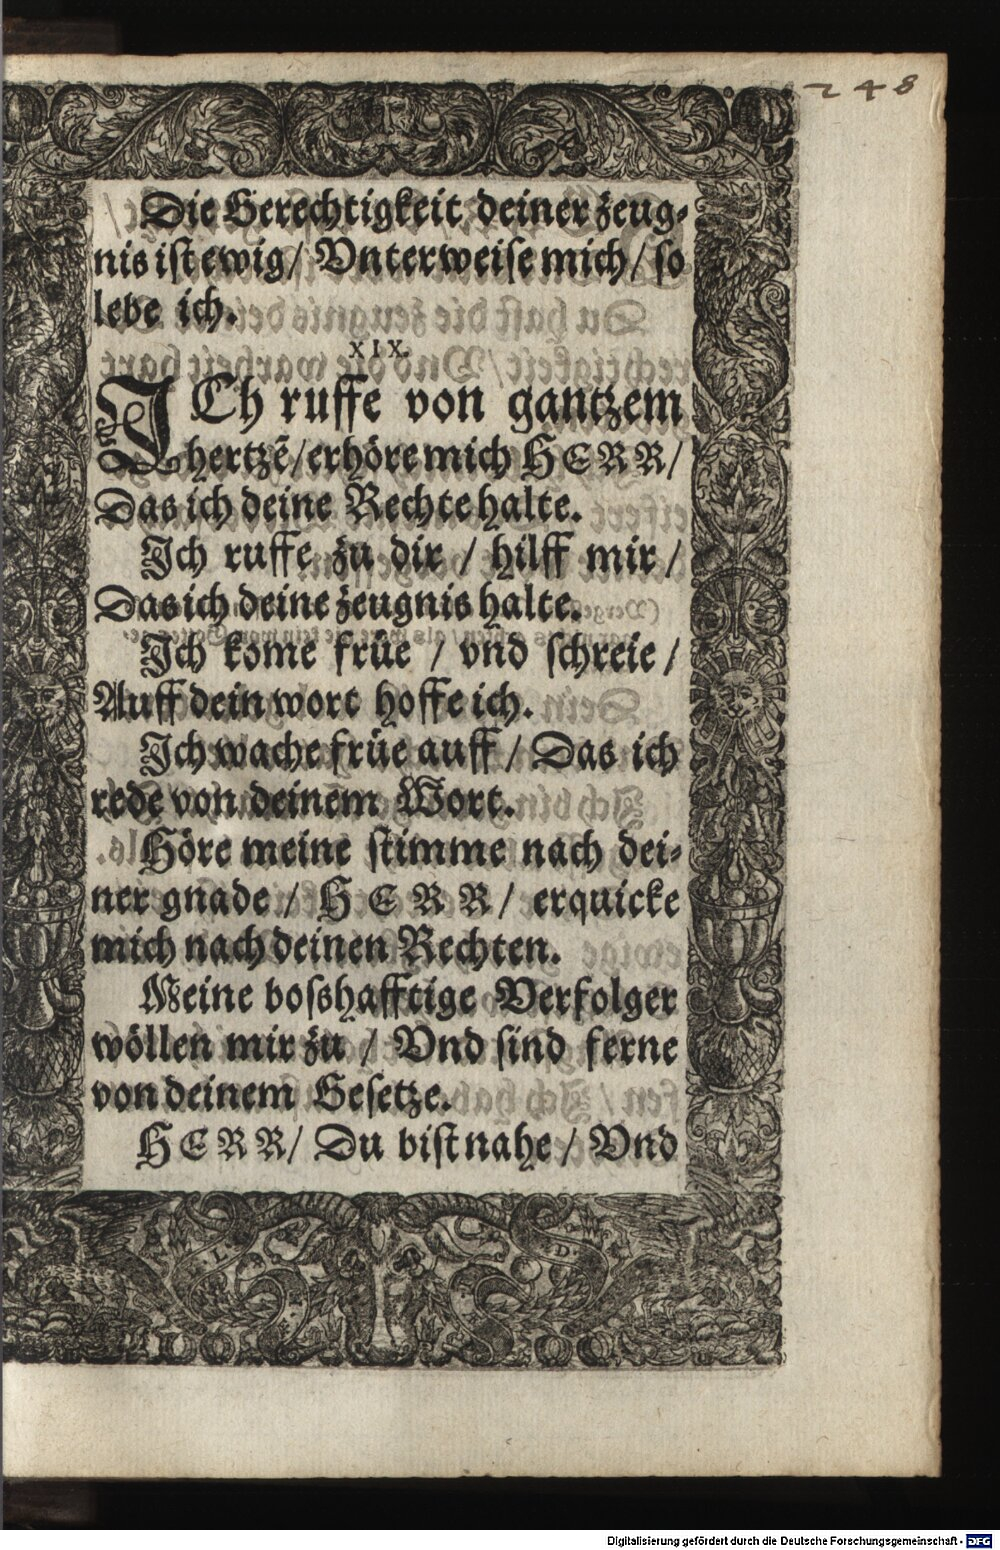 248
Die Gerechtigkeit deiner zeug-
nis ist ewig/ Vnterweise mich/ so
lebe ich.
XIX.
ICh ruffe von gantzem
hertzẽ/ erhöre mich HERR/
Das ich deine Rechte halte.
Ich ruffe zu dir / hilff mir /
Das ich deine zeugnis halte.
Ich kome früe / vnd schreie /
Auff dein wort hoffe ich.
Ich wache früe auff / Das ich
rede von deinem Wort.
Höre meine stimme nach dei-
ner gnade / HERR / erquicke
mich nach deinen Rechten.
Meine bosshafftige Verfolger
wöllen mir zu / Vnd sind ferne
von deinem Gesetze.
HERR/ Du bist nahe / Vnd
L D
Digitalisierung gefördert durch die Deutsche Forschungsgemeinschaft - DFG